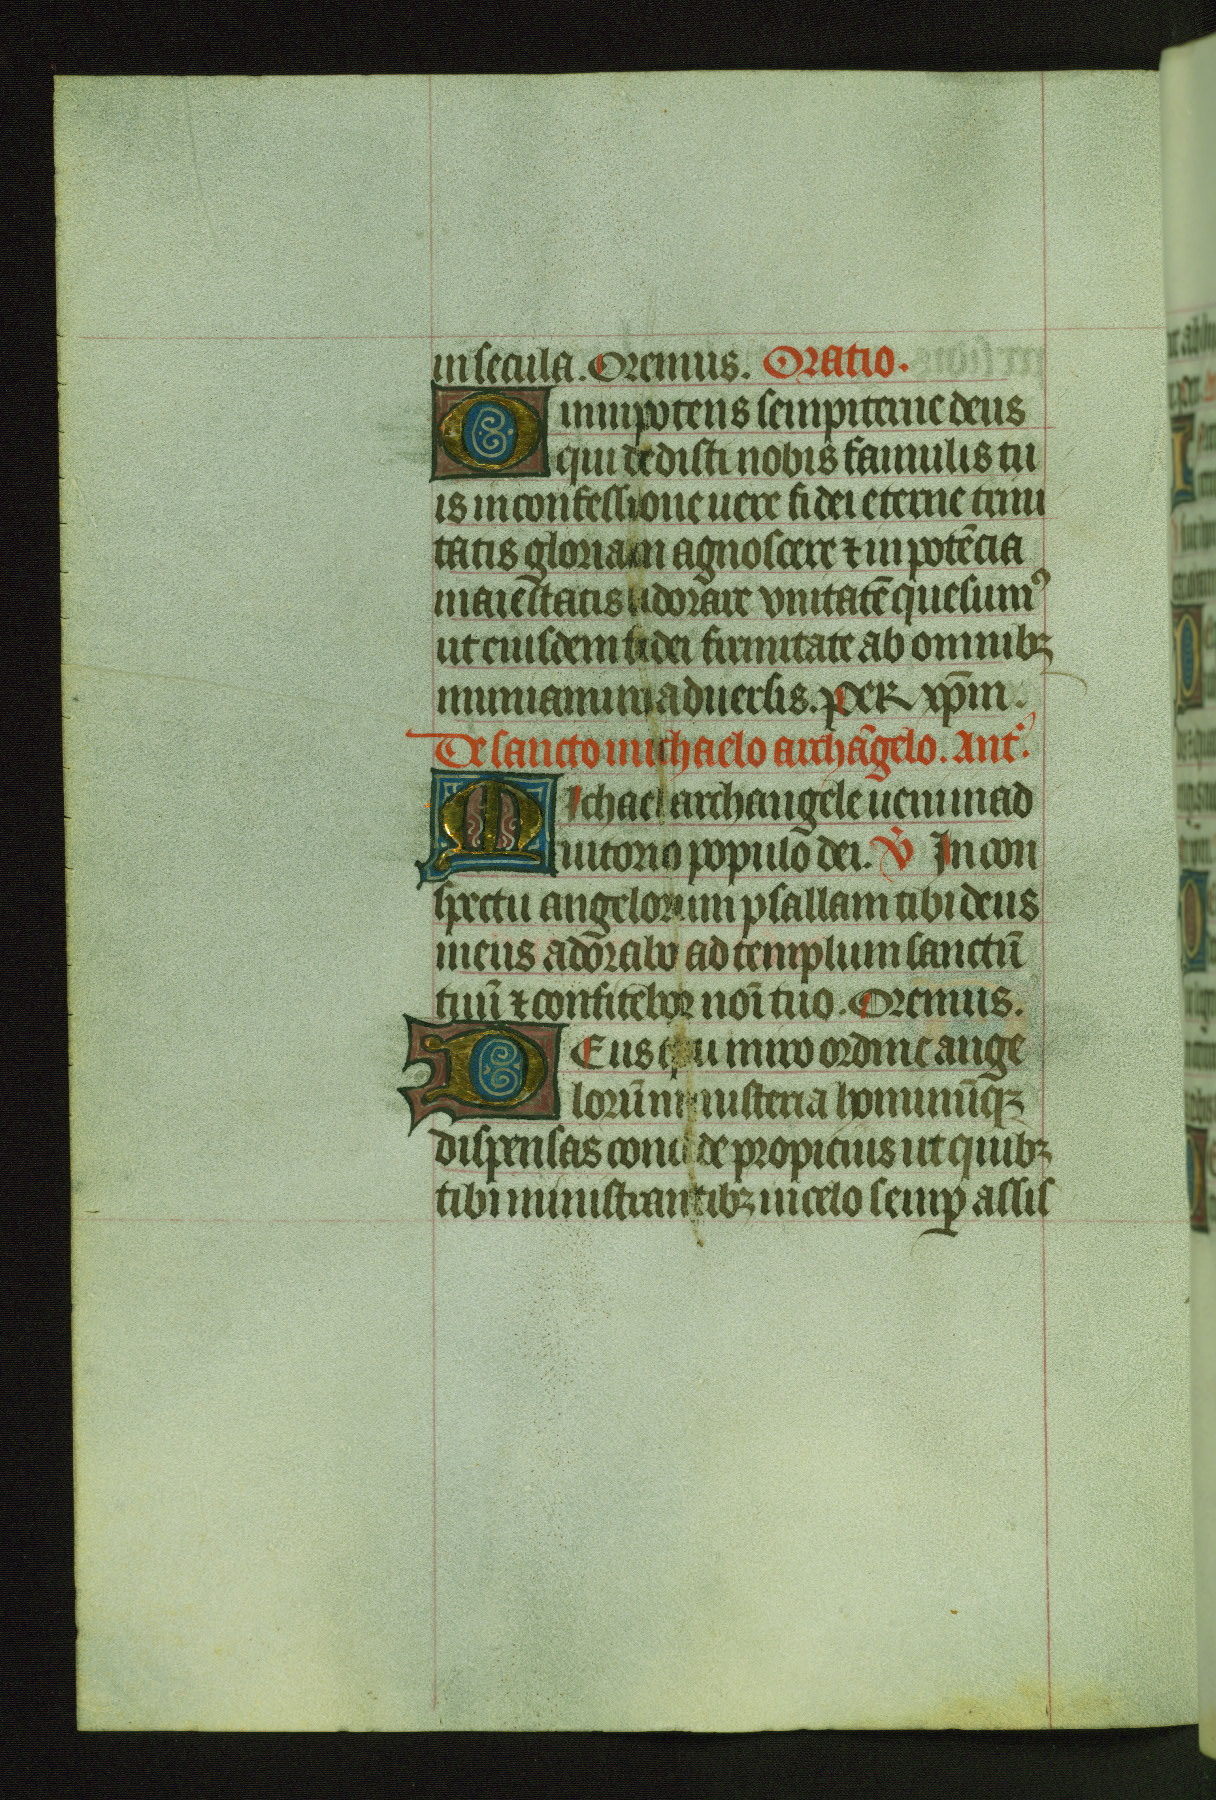 in secula. Oremus. Oratio.
Omnipotens sempiterne deus
qui dedisti nobis famulis tu
is in confessione uere fidei eterne trini
tatis gloriam agnoscere ⁊ in potēcia
maiestatis adorare vnitatē quesumꝰ
ut eiusdem fidei firmitate ab omnibꝫ
muniamur aduersis. PER xp̄m.
De sancto michaelo archāgelo. Ant.
Michael archangele ueni in ad
iutorio populo dei. V̄ In con
spectu angelorum psallam tibi deus
meus adorabo ad templum sanctū
tuū ⁊ confitebor noī tuo. Oremus.
DEus qui miro ordine ange
lorū ministeria hominūqꝫ
dispensas concede propicius ut quibꝫ
tibi ministrantibꝫ in celo semꝑ assis